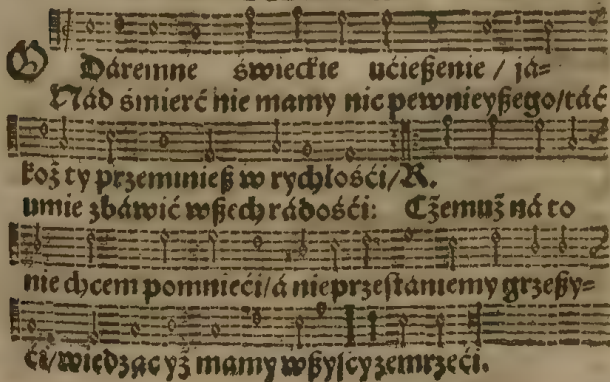 O Dáremne świeckie ućießenie / já=
Nád śmierć nie mamy nic pewnieyßego/táć
koż ty przeminieß w rychłośći/R.
umie zbáwić wßech rádośći: Cżemuż ná to
nie chcem pomniećі/á nieprzestániemy grzeßy=
ći/wiedząc yż mamy wßyscy zemrzeći.